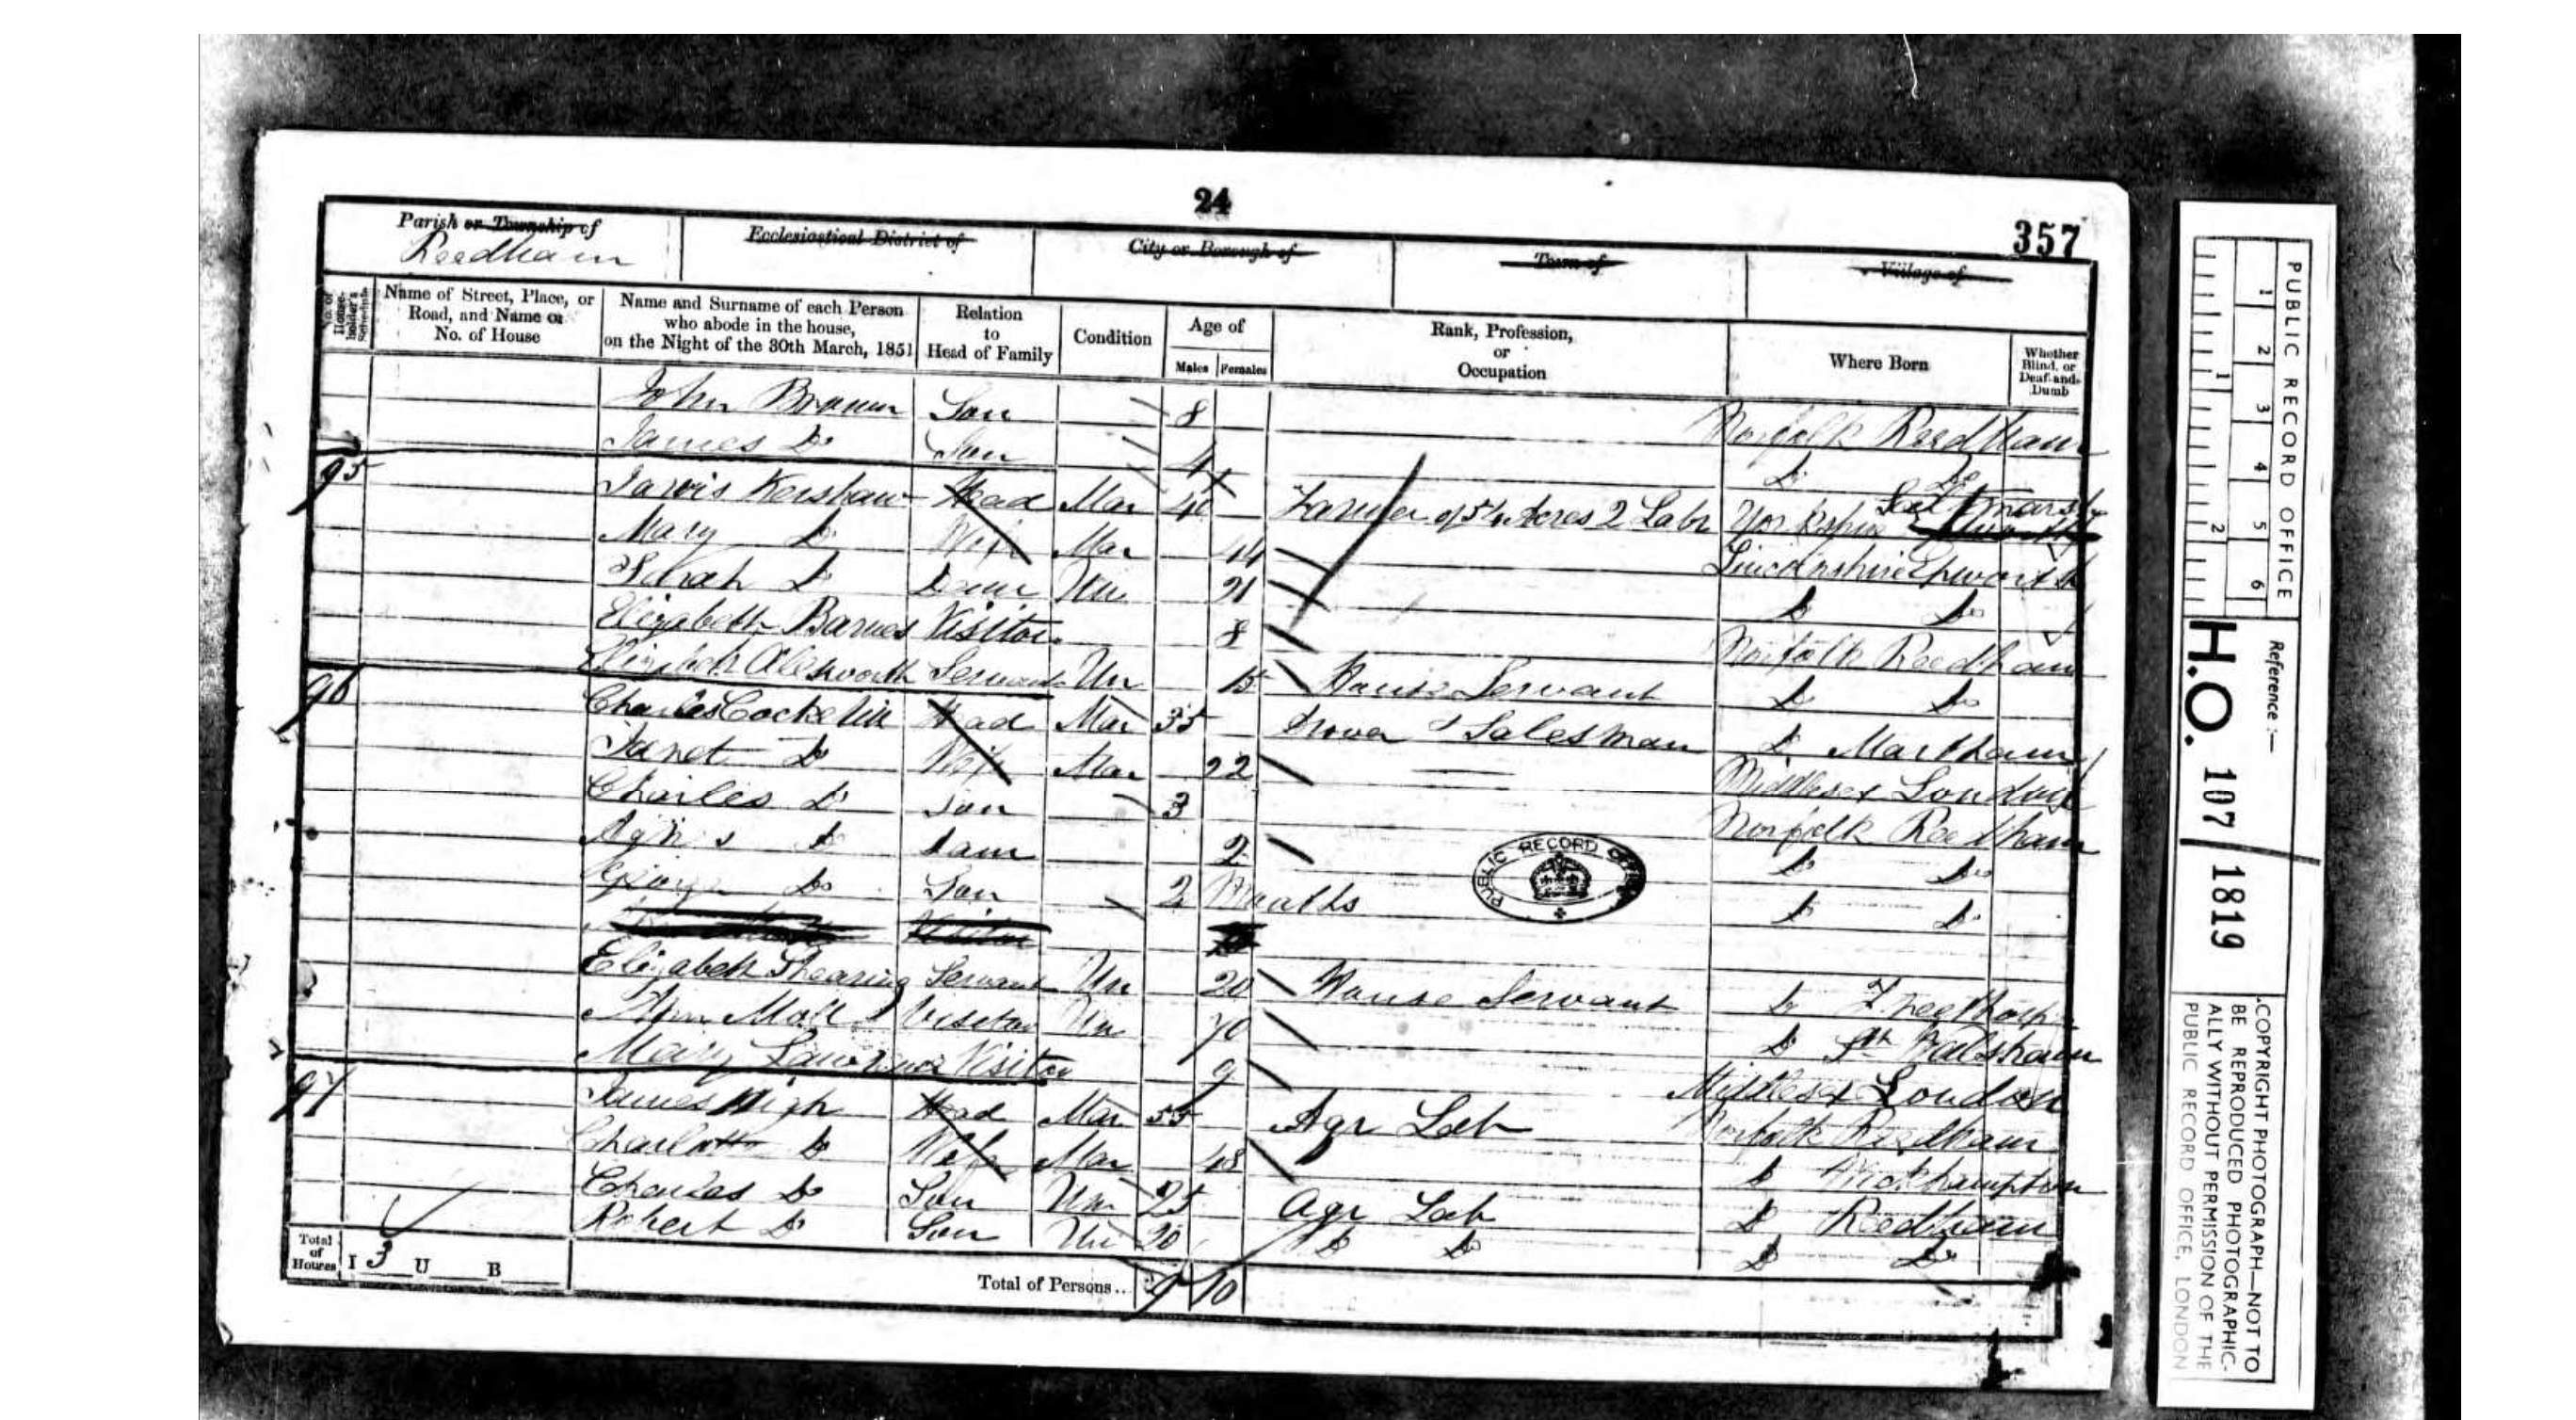 24
357
Parish or Township of
Reedham
Ecclesiastical District of
City or Borough of
Town of
Village of
No. of House-holder's Schedule
Name of Street, Place, or Road, and Name or No. of House
Name and Surname of each Person who abode in the house, on the Night of the 30th March, 1851
Relation to Head of Family
Condition
Age of
Males Females
Rank, Profession, or Occupation
Where Born
Whether Blind, or Deaf-and-Dumb
John Brown Son 8 Norfolk Reedham
James Do Son 4 Do Do
95 Jarvis Kershaw Head Mar 40 Farmer of 54 Acres 2 Labr Yorkshire
Mary Do Wife Mar 44 Lincolnshire Epworth
Sarah Do Daur Un 21 Do Do
Elizabeth Barnes Visitor 8 Norfolk Reedham
Servant Un 15 House Servant Do Do
96 Charles Head Mar 35 Drover & Salesman Do Martham
Janet Do Wife Mar 22 Middlesex London
Charles Do Son 3 Norfolk Reedham
Agnes Do Daur 2 Do Do
George Do Son 2 Months Do Do
Visitor
Elizabeth Shearing Servant Un 20 House Servant Do Freethorp
Ann Visitor Un 70 Do Walsham
Mary Lawrence Visitor 9 Middlesex London
97 James High Head Mar 55 Agr Lab Norfolk Reedham
Charlotte Do Wife Mar 48 Do Wickhampton
Charles Do Son Un 25 Agr Lab Do Reedham
Robert Do Son Un 20 Do Do Do Do
Total of Houses I 3 U B
Total of Persons.. 9 10
PUBLIC RECORD OFFICE
PUBLIC RECORD OFFICE
1 2 3 4 5 6
1 2
Reference :—
H.O. 107 / 1819
COPYRIGHT PHOTOGRAPH—NOT TO
BE REPRODUCED PHOTOGRAPHIC-
ALLY WITHOUT PERMISSION OF THE
PUBLIC RECORD OFFICE, LONDON